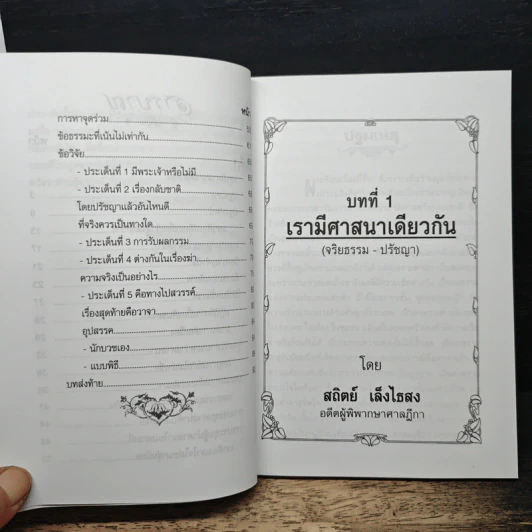 สารบาญ
หน้า
การหาจุดร่วม
ข้อธรรมะที่เน้นไม่เท่ากัน
ข้อวิจัย
- ประเด็นที่ 1 มีพระเจ้าหรือไม่มี
- ประเด็นที่ 2 เรื่องกลับชาติ
โดยปรัชญาแล้วอันไหนดี
ที่จริงควรเป็นทางใด
- ประเด็นที่ 3 การรับผลกรรม
- ประเด็นที่ 4 ต่างกันในเรื่องฆ่า
ความจริงเป็นอย่างไร
- ประเด็นที่ 5 คือทางไปสวรรค์
เรื่องสุดท้ายคือวาจา
อุปสรรค
- นักบวชเอง
- แบบพิธี
บทส่งท้าย
บทที่ 1
เรามีศาสนาเดียวกัน
(จริยธรรม - ปรัชญา)
โดย
สถิตย์ เล็งไธสง
อดีตผู้พิพากษาศาลฎีกา